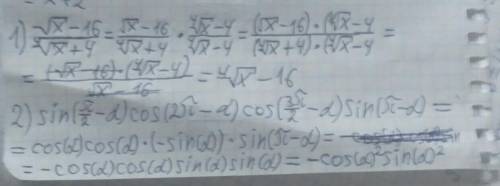 1) (√x-16)/(∜x+4) = (√x-16)/(∜x+4) · (∜x-4)/(∜x-4) = ((√x-16)·(∜x-4))/((∜x+4)·(∜x-4)) =
= ((√x-16)·(∜x-4))/(√x-16) = ∜x-16
2) sin(π/2-α)cos(2π-α)cos(3π/2-α)sin(π-α) =
= cos(α)cos(α)·(-sin(α))·sin(π-α) =
= -cos(α)cos(α)sin(α)sin(α) = -cos(α)²sin(α)²